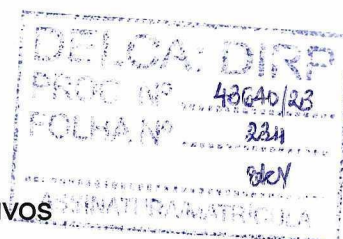 DELCA: DIRP
PROC Nº 43640/23
FOLHA Nº 234
IVOS ASSINATURA/MATRÍCULA